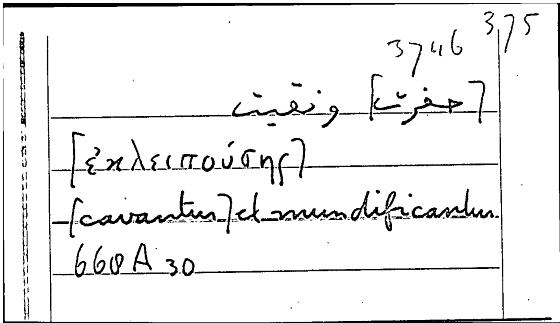 3746 375
[حفرت] ونقيت
[ἐκλειπούσης]
[cavantur] et mundificantur
668A 30